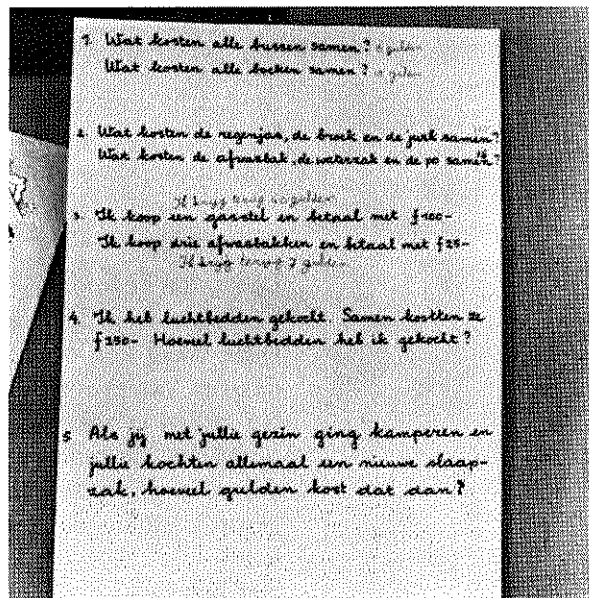 1. Wat kosten alle bussen samen? gulden
Wat kosten alle boeken samen? gulden
2. Wat kosten de regenjas, de broek en de jurk samen?
Wat kosten de afwasbak, de waterzak en de po samen?
Ik krijg terug gulden
3. Ik koop een gasstel en betaal met f100-
Ik koop drie afwasbakken en betaal met f25-
Ik krijg terug 7 gulden
4. Ik heb luchtbedden gekocht. Samen kostten ze
f250- Hoeveel luchtbedden heb ik gekocht?
5 Als jij met jullie gezin ging kamperen en
jullie kochten allemaal een nieuwe slaap-
zak, hoeveel gulden kost dat dan?